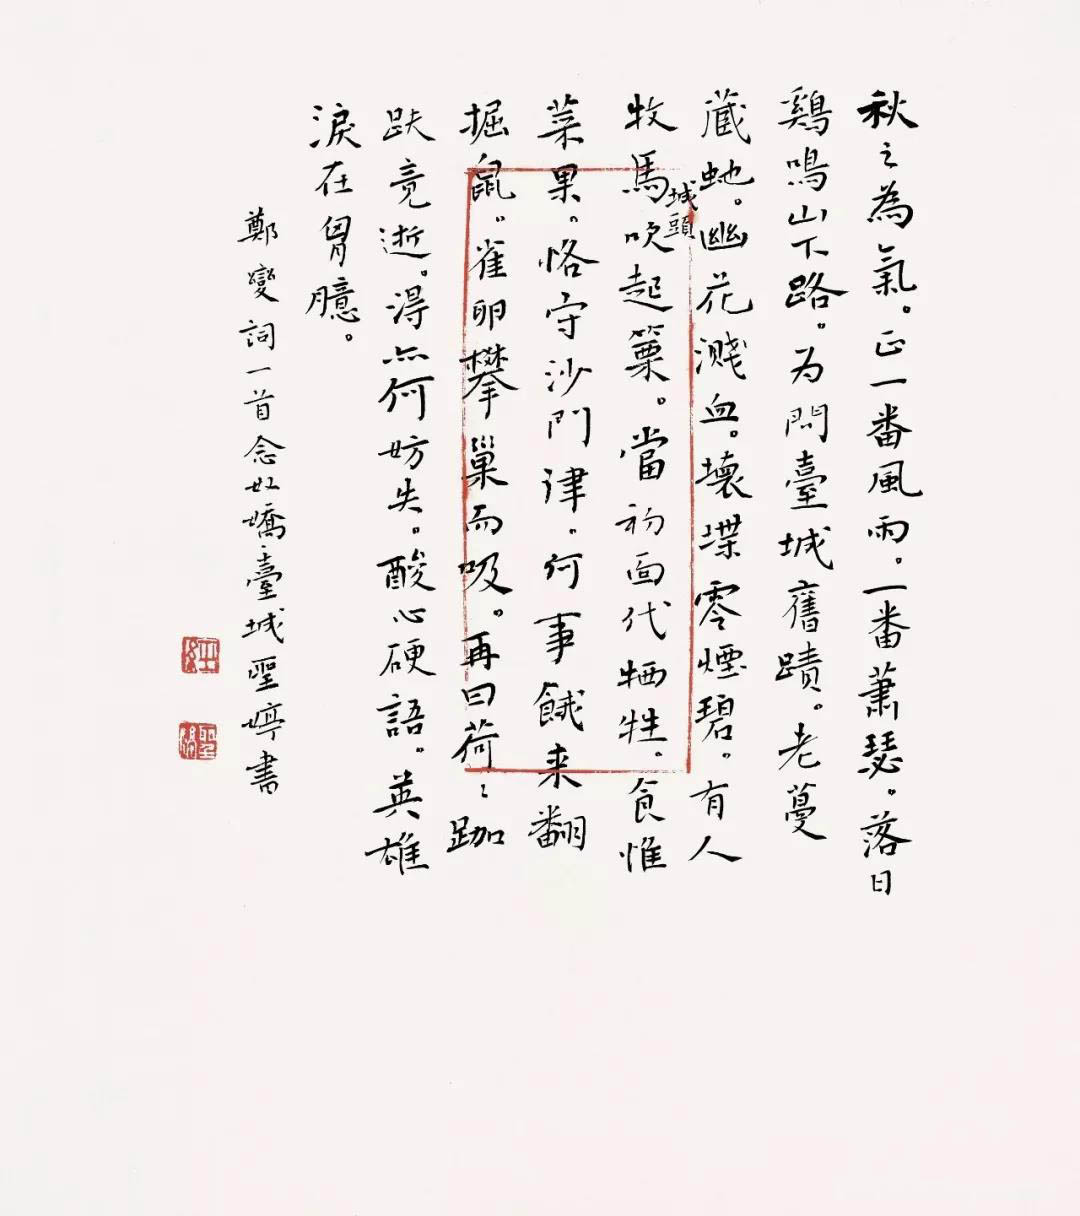 秋之為氣。正一番風雨。一番蕭瑟。落日
鷄鳴山下路。为問臺城舊蹟。老蔓
藏虵。幽花濺血。壞堞零煙碧。有人
牧馬城頭吹起篥。當初面代牺牲。食惟
菜果。恪守沙門律。何事餓来翻
掘鼠。雀卵攀巢而吸。再曰荷〻跏
趺竟逝。得亦何妨失。酸心硬語。英雄
淚在胷臆。
鄭燮詞一首念奴嬌·臺城聖婷書